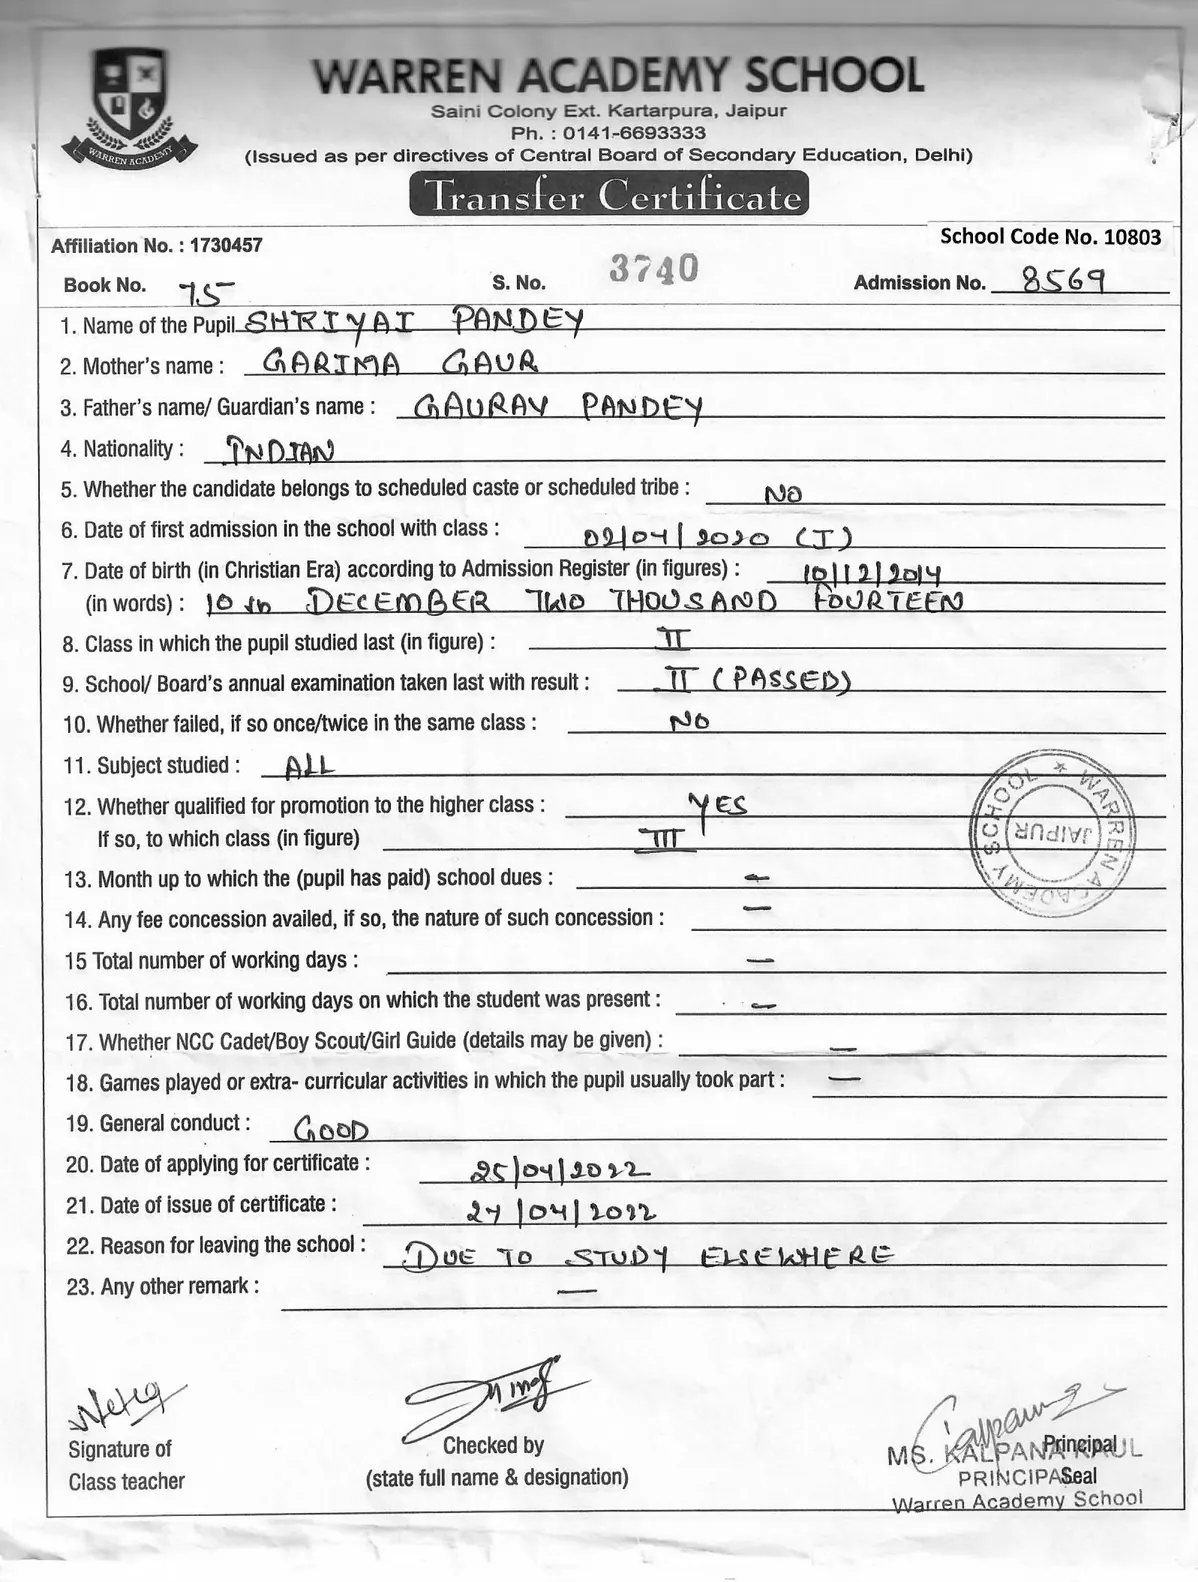 WARREN ACADEMY SCHOOL
Saini Colony Ext. Kartarpura, Jaipur
Ph. : 0141-6693333
(Issued as per directives of Central Board of Secondary Education, Delhi)
WARREN ACADEMY
Transfer Certificate
Affiliation No. : 1730457 School Code No. 10803
Book No. 75 S. No. 3740 Admission No. 8569
1. Name of the Pupil SHRIYAI PANDEY
2. Mother's name : GARIMA GAUR
3. Father's name/ Guardian's name : GAURAV PANDEY
4. Nationality : INDIAN
5. Whether the candidate belongs to scheduled caste or scheduled tribe : NO
6. Date of first admission in the school with class : 02/04/2020 (I)
7. Date of birth (in Christian Era) according to Admission Register (in figures) : 10/12/2014
(in words) : 10 th DECEMBER TWO THOUSAND FOURTEEN
8. Class in which the pupil studied last (in figure) : II
9. School/ Board's annual examination taken last with result : II (PASSED)
10. Whether failed, if so once/twice in the same class : NO
11. Subject studied : ALL
12. Whether qualified for promotion to the higher class : YES
If so, to which class (in figure) III
WARREN ACADEMY SCHOOL
JAIPUR
13. Month up to which the (pupil has paid) school dues : —
14. Any fee concession availed, if so, the nature of such concession : —
15 Total number of working days : —
16. Total number of working days on which the student was present : —
17. Whether NCC Cadet/Boy Scout/Girl Guide (details may be given) : —
18. Games played or extra- curricular activities in which the pupil usually took part : —
19. General conduct : GOOD
20. Date of applying for certificate : 25/04/2022
21. Date of issue of certificate : 27/04/2022
22. Reason for leaving the school : DUE TO STUDY ELSEWHERE
23. Any other remark : —
Signature of Checked by Principal
Class teacher (state full name & designation) Seal
MS. KALPANA KAUL
PRINCIPAL
Warren Academy School